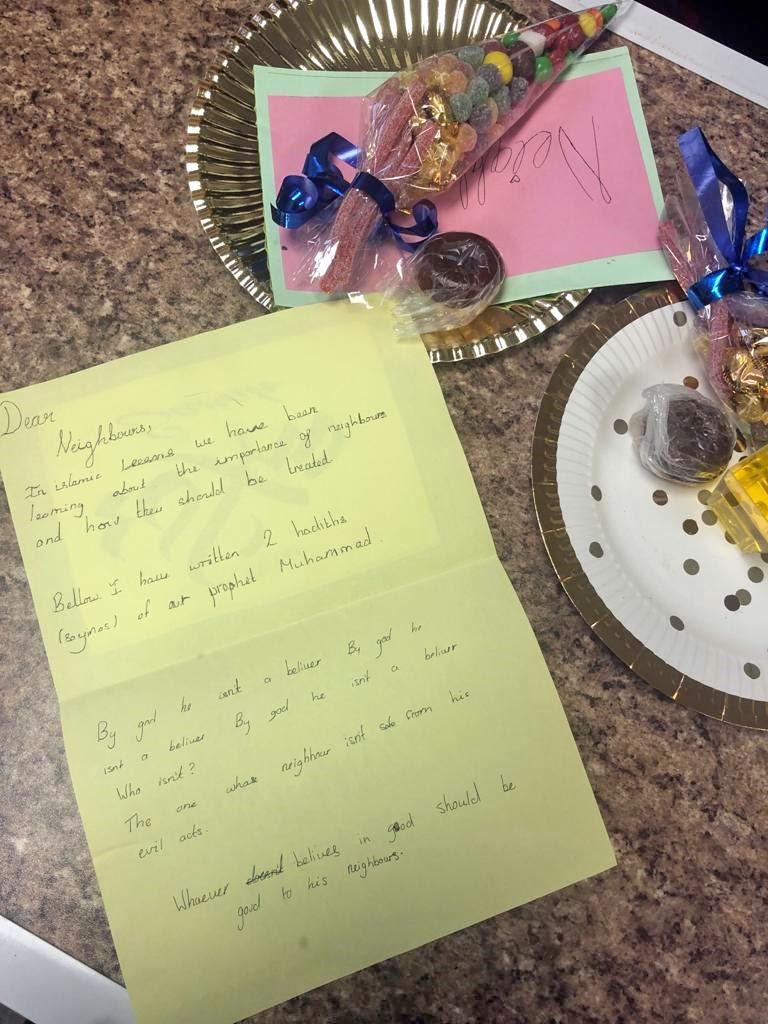 Neighb
Dear
Neighbours,
In islamic Lessons we have been
learning about the importance of neighbours
and how they should be treated
Bellow I have written 2 hadiths
(sayings) of our prophet Muhammad.
By god he isn't a beliver By god he
isnt a beliver By god he isn't a beliver
Who isn't?
The one whose neighbour isn't safe from his
evil acts.
Whoever belives in god should be
good to his neighbours.